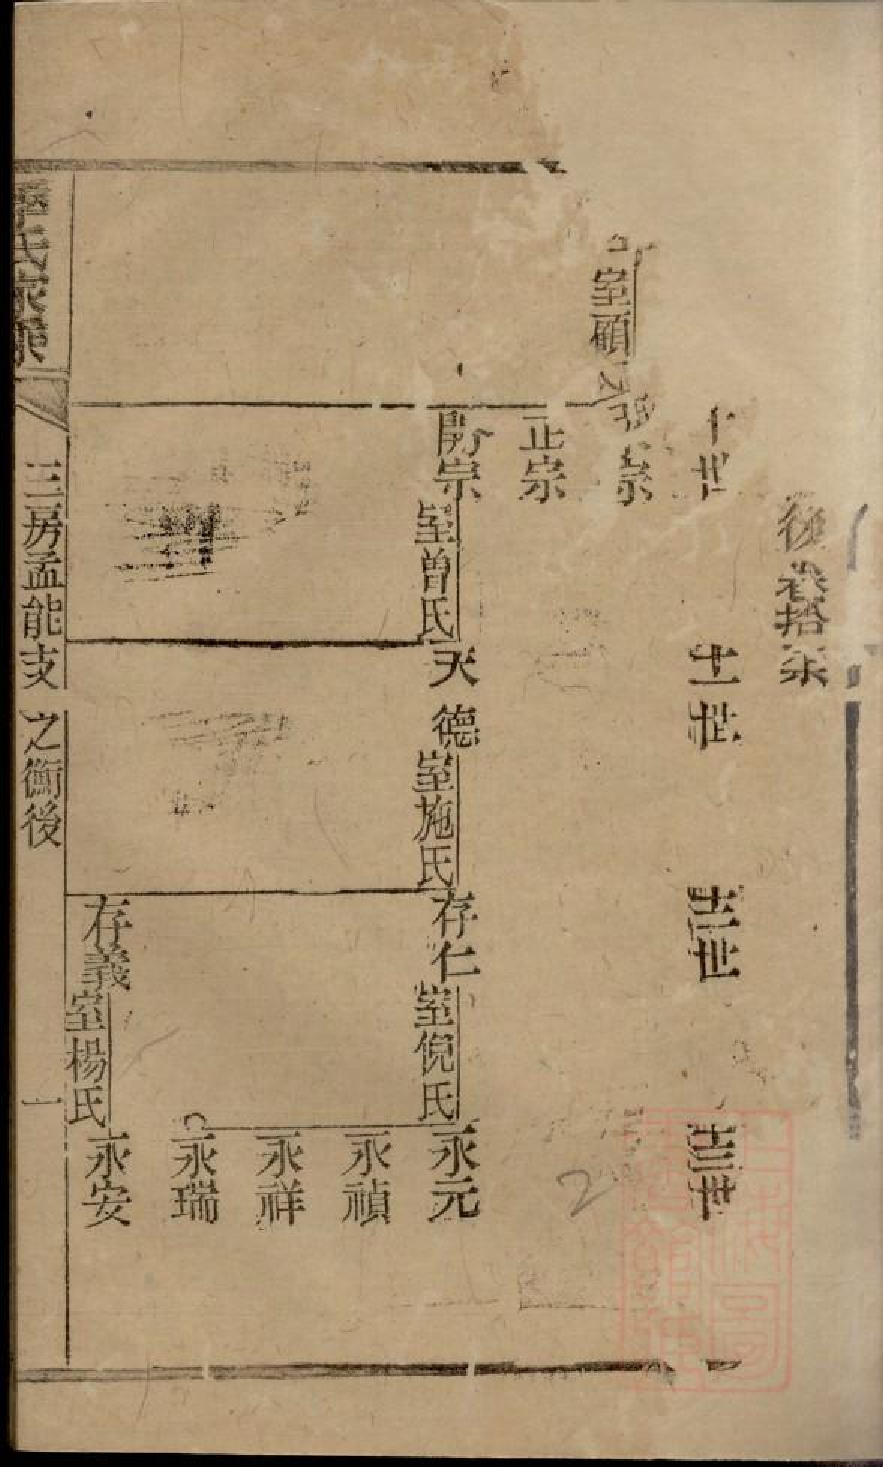 後卷拾柒
十世
十一世
十二世
十三世
室顧氏
宗
正宗
開宗
室曾氏
天德
室施氏
存仁
室倪氏
永元
永禎
永祥
永瑞
存義
室楊氏
永安
氏家乘
三房孟能支
之衡後
一
2